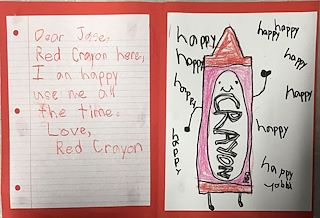 Dear Jose,
Red Crayon here,
I am happy
use me all
the time.
Love,
Red Crayon
happy
happy
happy
happy
happy
happy
happy
happy
happy
happy
happy
CRAYON